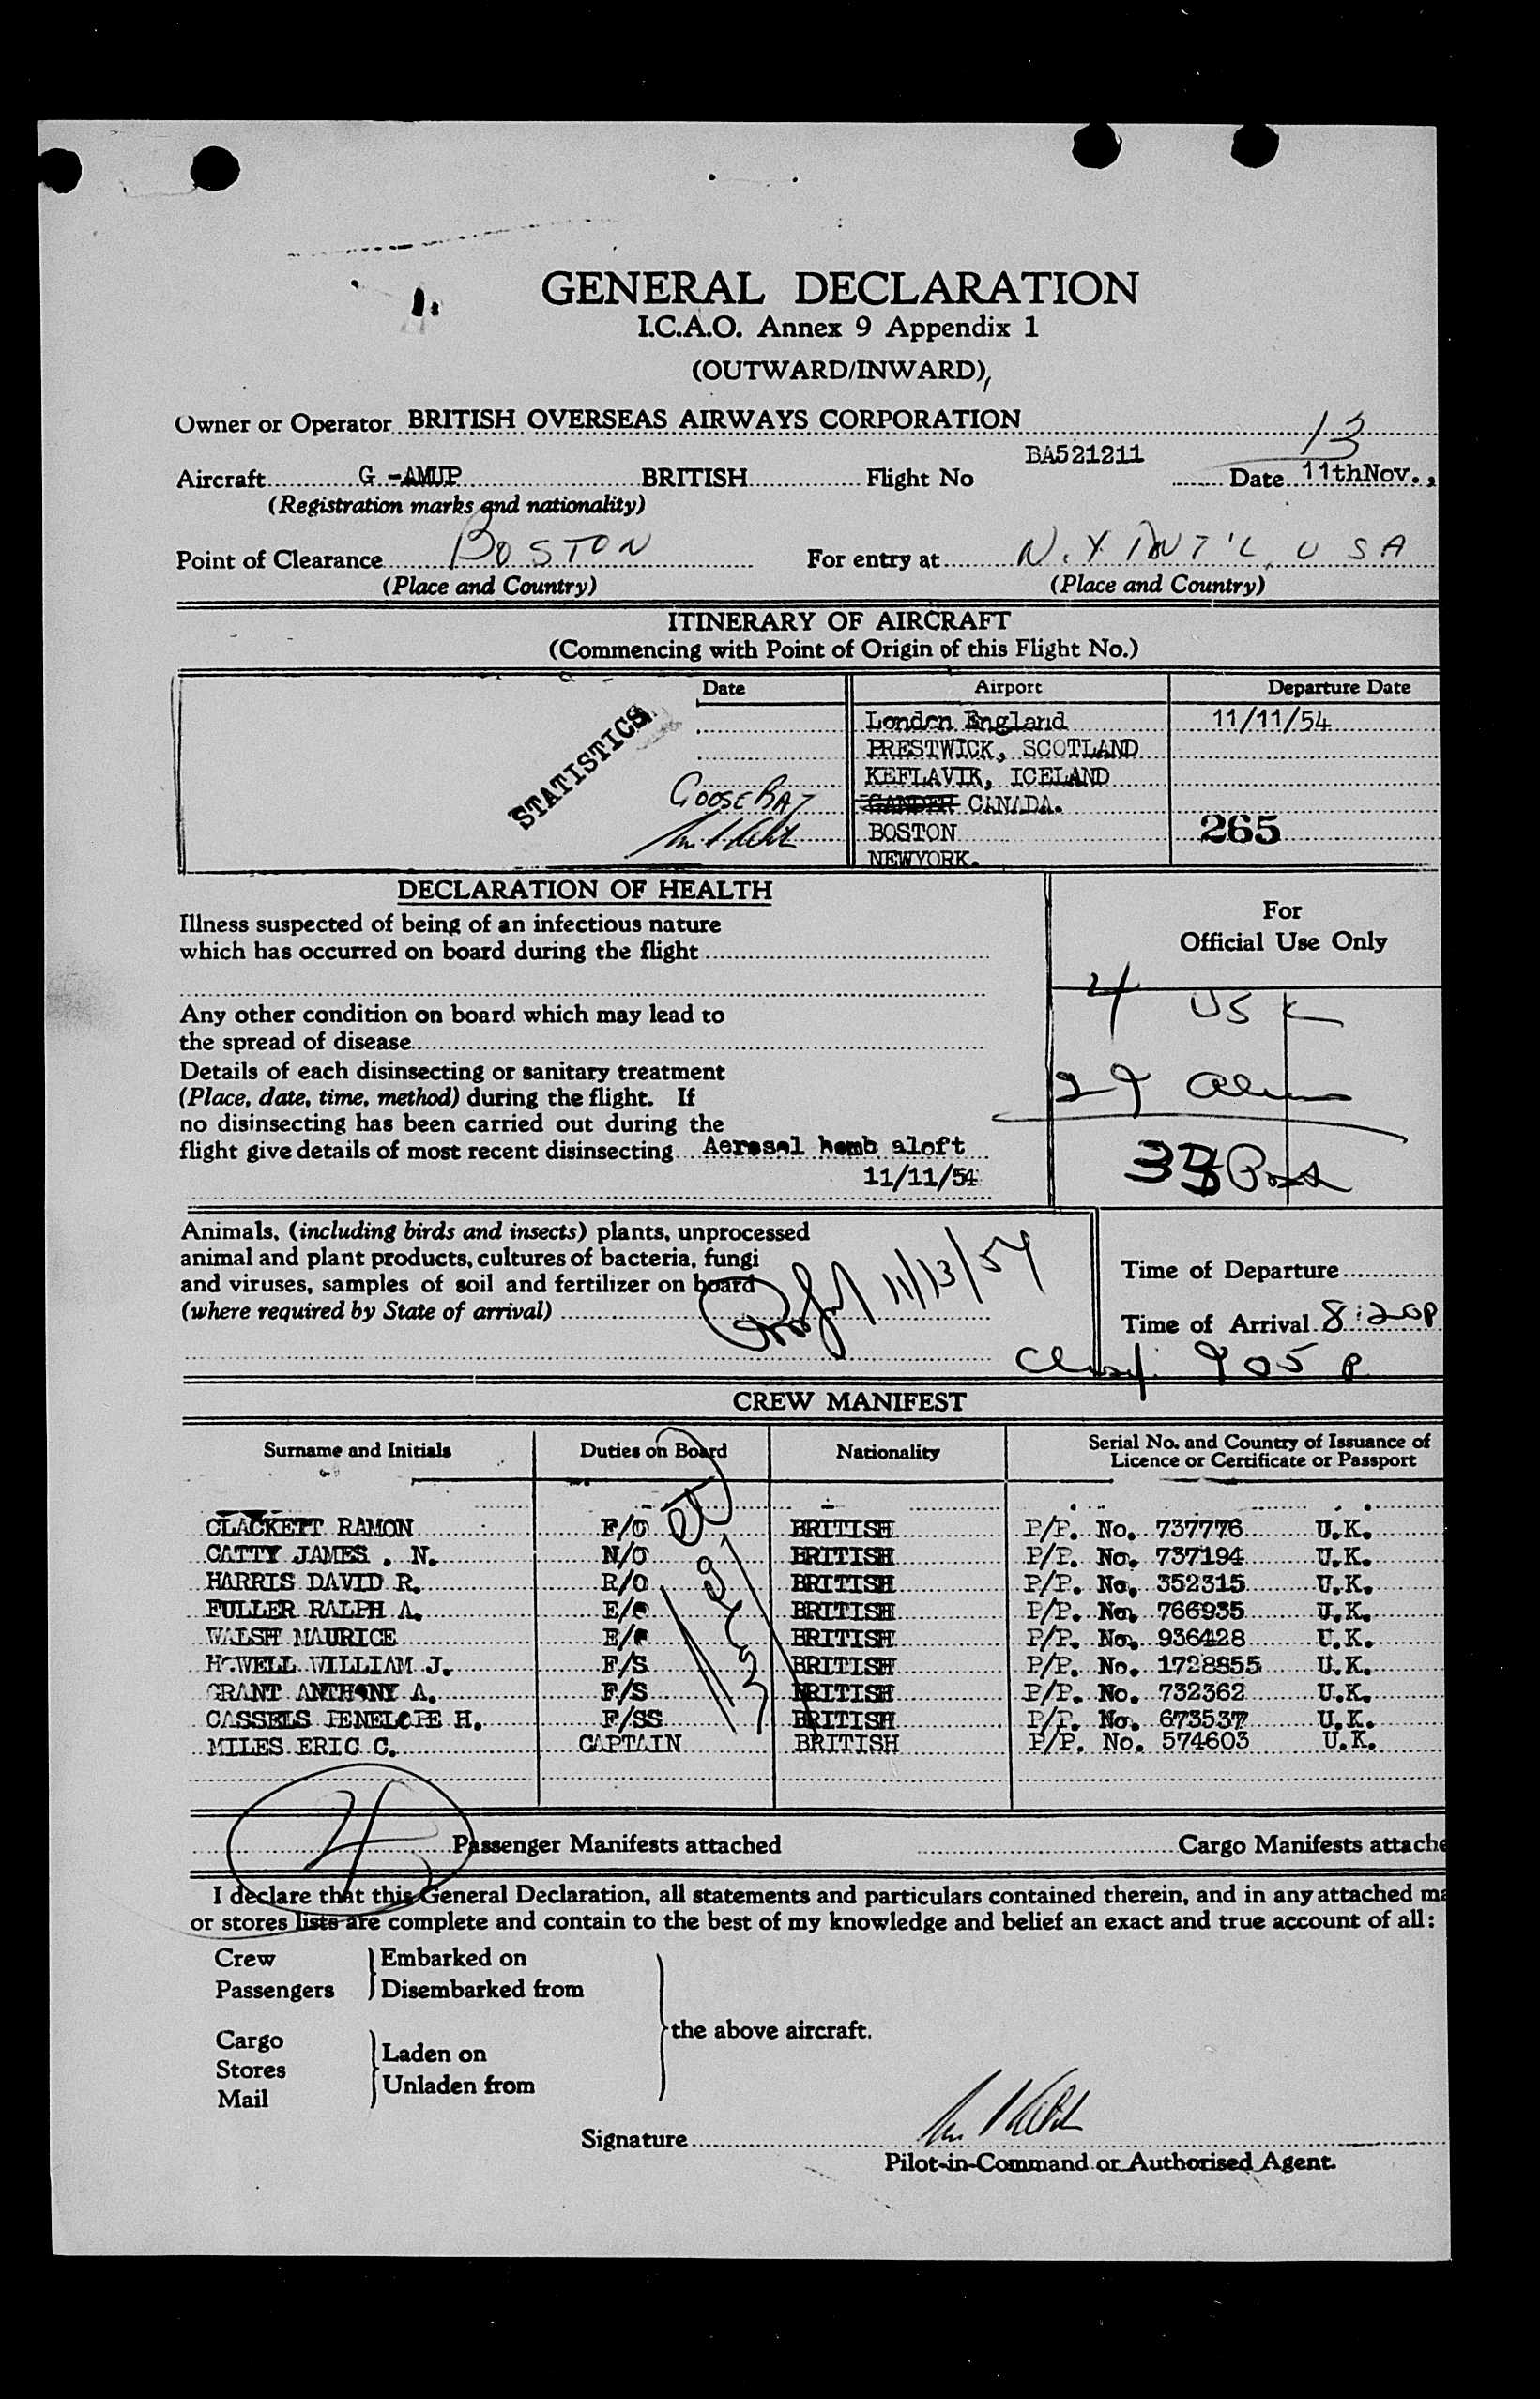 GENERAL DECLARATION
I.C.A.O. Annex 9 Appendix 1
(OUTWARD/INWARD)
Owner or Operator BRITISH OVERSEAS AIRWAYS CORPORATION
13
Aircraft G.-AMUP BRITISH Flight No BA521211 Date 11thNov.,
(Registration marks and nationality)
Point of Clearance BOSTON For entry at N.Y. INT'L, USA
(Place and Country) (Place and Country)
ITINERARY OF AIRCRAFT
(Commencing with Point of Origin of this Flight No.)
Date Airport Departure Date
STATISTICS
London England 11/11/54
PRESTWICK, SCOTLAND
KEFLAVIK, ICELAND
GOOSE BAY GANDER CANADA.
BOSTON 265
NEWYORK.
DECLARATION OF HEALTH
For
Official Use Only
Illness suspected of being of an infectious nature
which has occurred on board during the flight
4 US
Any other condition on board which may lead to
the spread of disease
29
Details of each disinsecting or sanitary treatment
(Place, date, time, method) during the flight. If
no disinsecting has been carried out during the
flight give details of most recent disinsecting Aerosol bomb aloft
11/11/54
33
Animals, (including birds and insects) plants, unprocessed
animal and plant products, cultures of bacteria, fungi
and viruses, samples of soil and fertilizer on board
(where required by State of arrival)
11/13/54
Time of Departure
Time of Arrival 8:20P
905 P
CREW MANIFEST
Surname and Initials Duties on Board Nationality Serial No. and Country of Issuance of
Licence or Certificate or Passport
CLACKETT RAMON F/O BRITISH P/P. No. 737776 U.K.
CATTY JAMES . N. N/O BRITISH P/P. No. 737194 U.K.
HARRIS DAVID R. R/O BRITISH P/P. No. 352315 U.K.
FULLER RALPH A. E/O BRITISH P/P. No. 766935 U.K.
WALSH MAURICE E/O BRITISH P/P. No. 936428 U.K.
HOWELL WILLIAM J. F/S BRITISH P/P. No. 1728855 U.K.
GRANT ANTHONY A. F/S BRITISH P/P. No. 732362 U.K.
CASSELS PENELOPE H. F/SS BRITISH P/P. No. 673537 U.K.
MILES ERIC C. CAPTAIN BRITISH P/P. No. 574603 U.K.
4 Passenger Manifests attached Cargo Manifests attache
I declare that this General Declaration, all statements and particulars contained therein, and in any attached ma
or stores lists are complete and contain to the best of my knowledge and belief an exact and true account of all:
Crew Embarked on
Passengers Disembarked from
the above aircraft.
Cargo
Stores Laden on
Mail Unladen from
Signature
Pilot-in-Command or Authorised Agent.